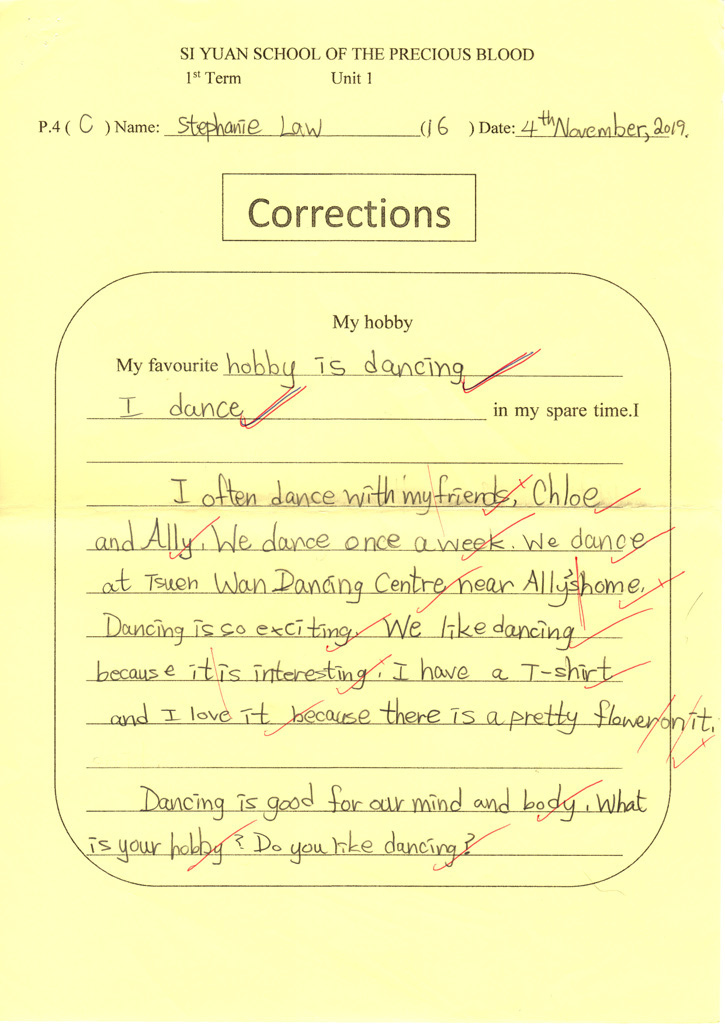 SI YUAN SCHOOL OF THE PRECIOUS BLOOD
1st Term Unit 1
P.4 ( C ) Name: Stephanie Law (16 ) Date: 4th November, 2019.
Corrections
My hobby
My favourite hobby is dancing
I dance in my spare time.I
I often dance with my friends, Chloe
and Ally. We dance once a week. We dance
at Tsuen Wan Dancing Centre near Ally's home.
Dancing is so exciting. We like dancing
because it is interesting. I have a T-shirt
and I love it because there is a pretty flower on it.
Dancing is good for our mind and body. What
is your hobby? Do you like dancing?